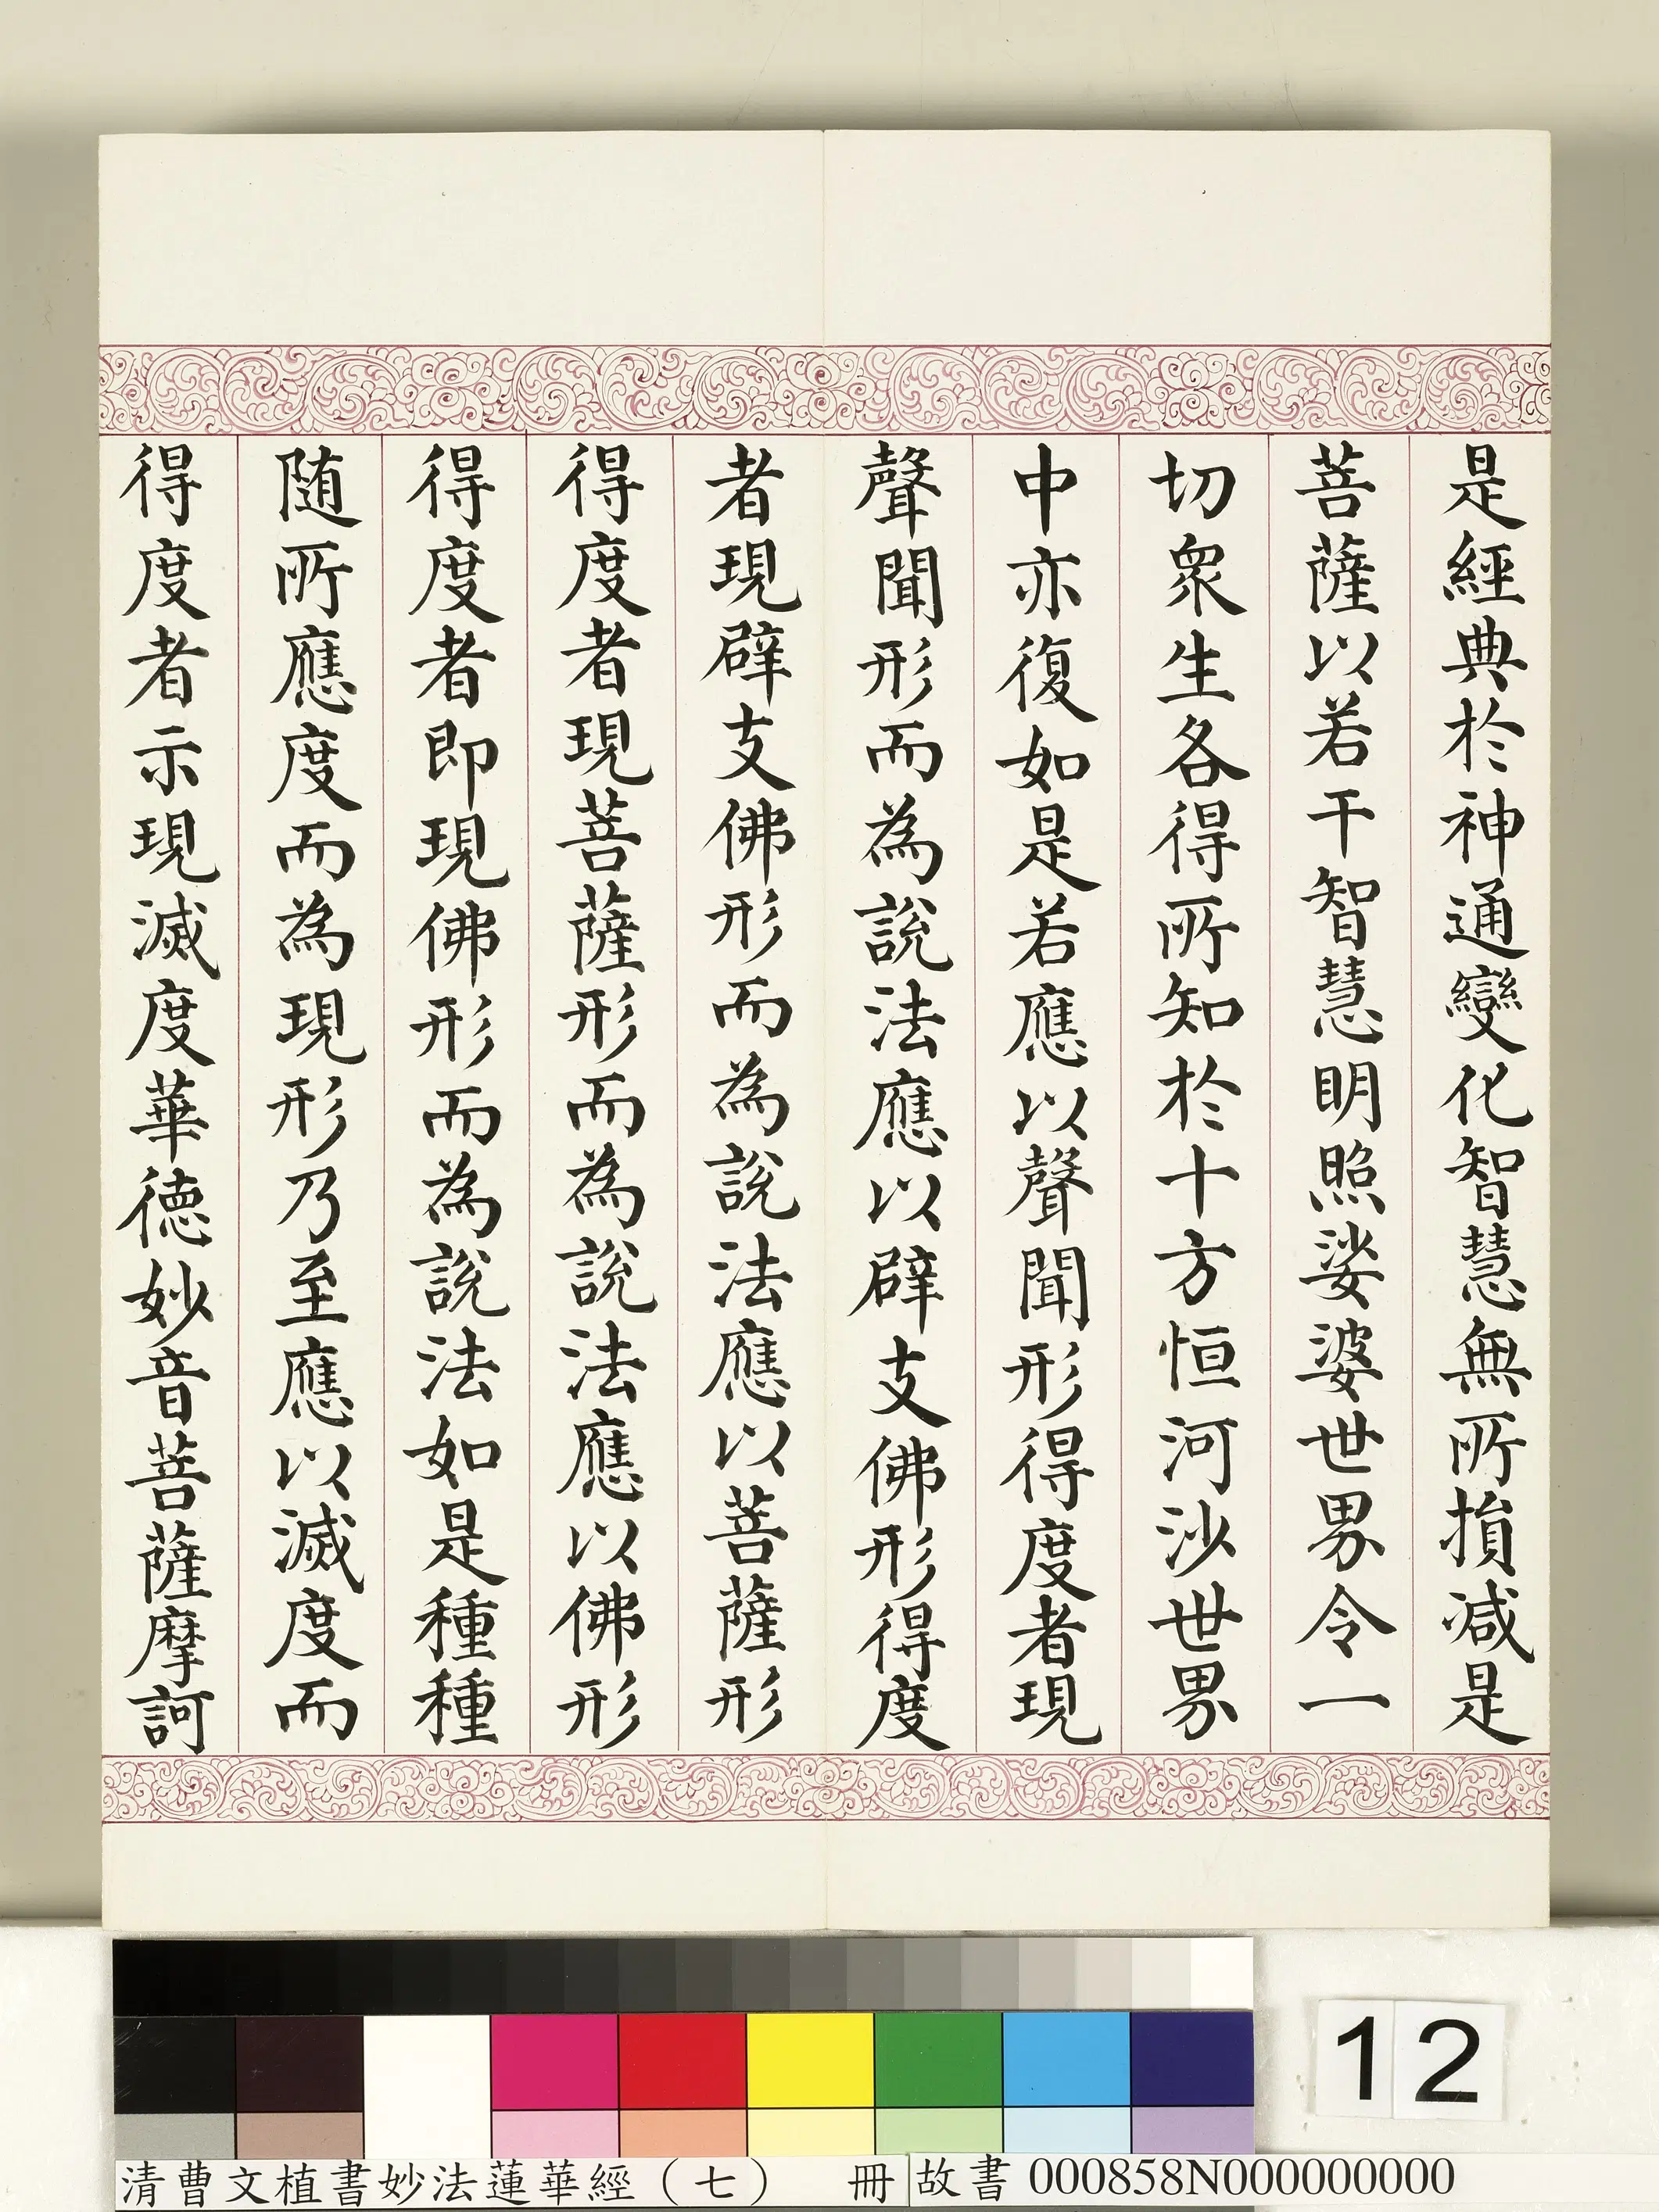 是經典於神通變化智慧無所損减是
菩薩以若干智慧明照娑婆世界令一
切眾生各得所知於十方恒河沙世界
中亦復如是若應以聲聞形得度者現
聲聞形而為說法應以辟支佛形得度
者現辟支佛形而為說法應以菩薩形
得度者現菩薩形而為說法應以佛形
得度者即現佛形而為說法如是種種
随所應度而為現形乃至應以滅度而
得度者示現滅度華徳妙音菩薩摩訶
12
清曹文植書妙法蓮華經(七) 冊 故書 000858N000000000